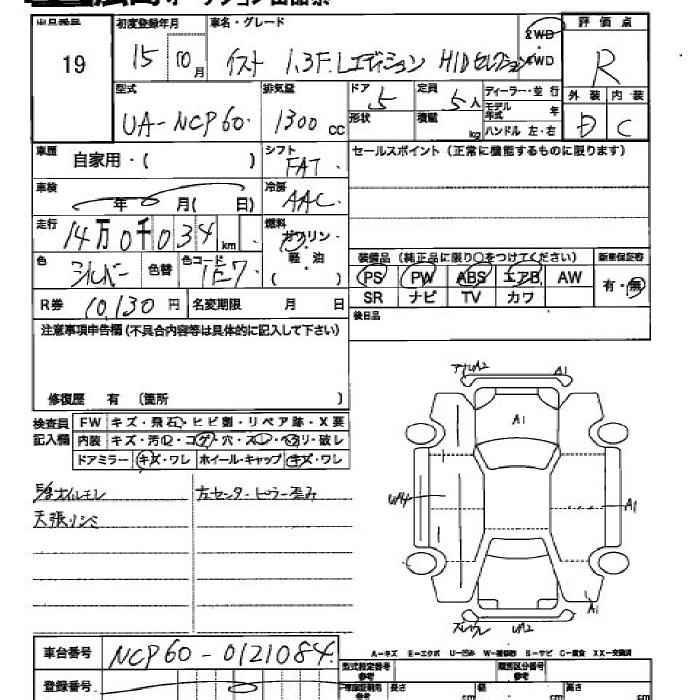 出品番号 初度登録年月 車名・グレード 評価点
19 15 10月 イスト 1.3F.Lエディション HIDセレクション 2WD 4WD R
型式 排気量 ドア 定員 ディーラー・並行 外装 内装
UA-NCP60. 1300cc 5 5人 モデル年式 年 D C
形状 積載 kg ハンドル 左・右
車歴 自家用・( ) シフト FAT. セールスポイント(正常に機能するものに限ります)
車検 年 月( 日) 冷房 AAC.
走行 14万0千034km 燃料 ガソリン・軽油 ( )
色 シルバー 色替 色コード 1E7 装備品(純正品に限り○をつけてください) 新車保証書
PS PW ABS エアB AW 有・無
R券 10,130円 名変期限 月 日 SR ナビ TV カワ
注意事項申告欄(不具合内容等は具体的に記入して下さい) 後日品
修復歴 有 (箇所 )
検査員記入欄 FW キズ・飛石・ヒビ割・リペア跡・X要
内装 キズ・汚レ・コゲ・穴・スレ・ヘタリ・破レ
ドアミラー キズ・ワレ ホイール・キャップ キズ・ワレ
A1
A1
A1
A1
UA4
U42
天張りシミ 左センターピラー歪み
車台番号 NCP60-0121084.
A-キズ E-エクボ U-凹み W-補修跡 S-サビ C-腐食 XX-交換済
型式指定番号 類別区分番号
登録番号 長さ cm 幅 cm 高さ cm